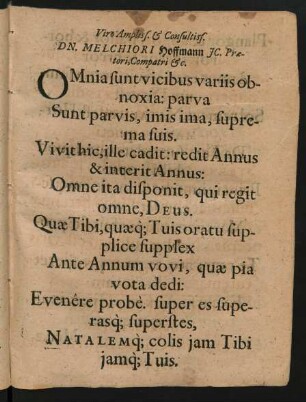 Viro Ampliss. & Consultiss.
DN. MELCHIORI Hoffmann JC. Præ-
tori, Compatri &c.
OMnia sunt vicibus variis ob-
noxia: parva
Sunt parvis, imis ima, supre-
ma suis.
Vivit hic, ille cadit: redit Annus
& interit Annus:
Omne ita disponit, qui regit
omne, DEUS.
Quæ Tibi, quæq; Tuis oratu sup-
plice supplex
Ante Annum vovi, quæ pia
vota dedi:
Evenére probè. super es supe-
rasq; superstes,
NATALEMq; colis jam Tibi
jamq; Tuis.